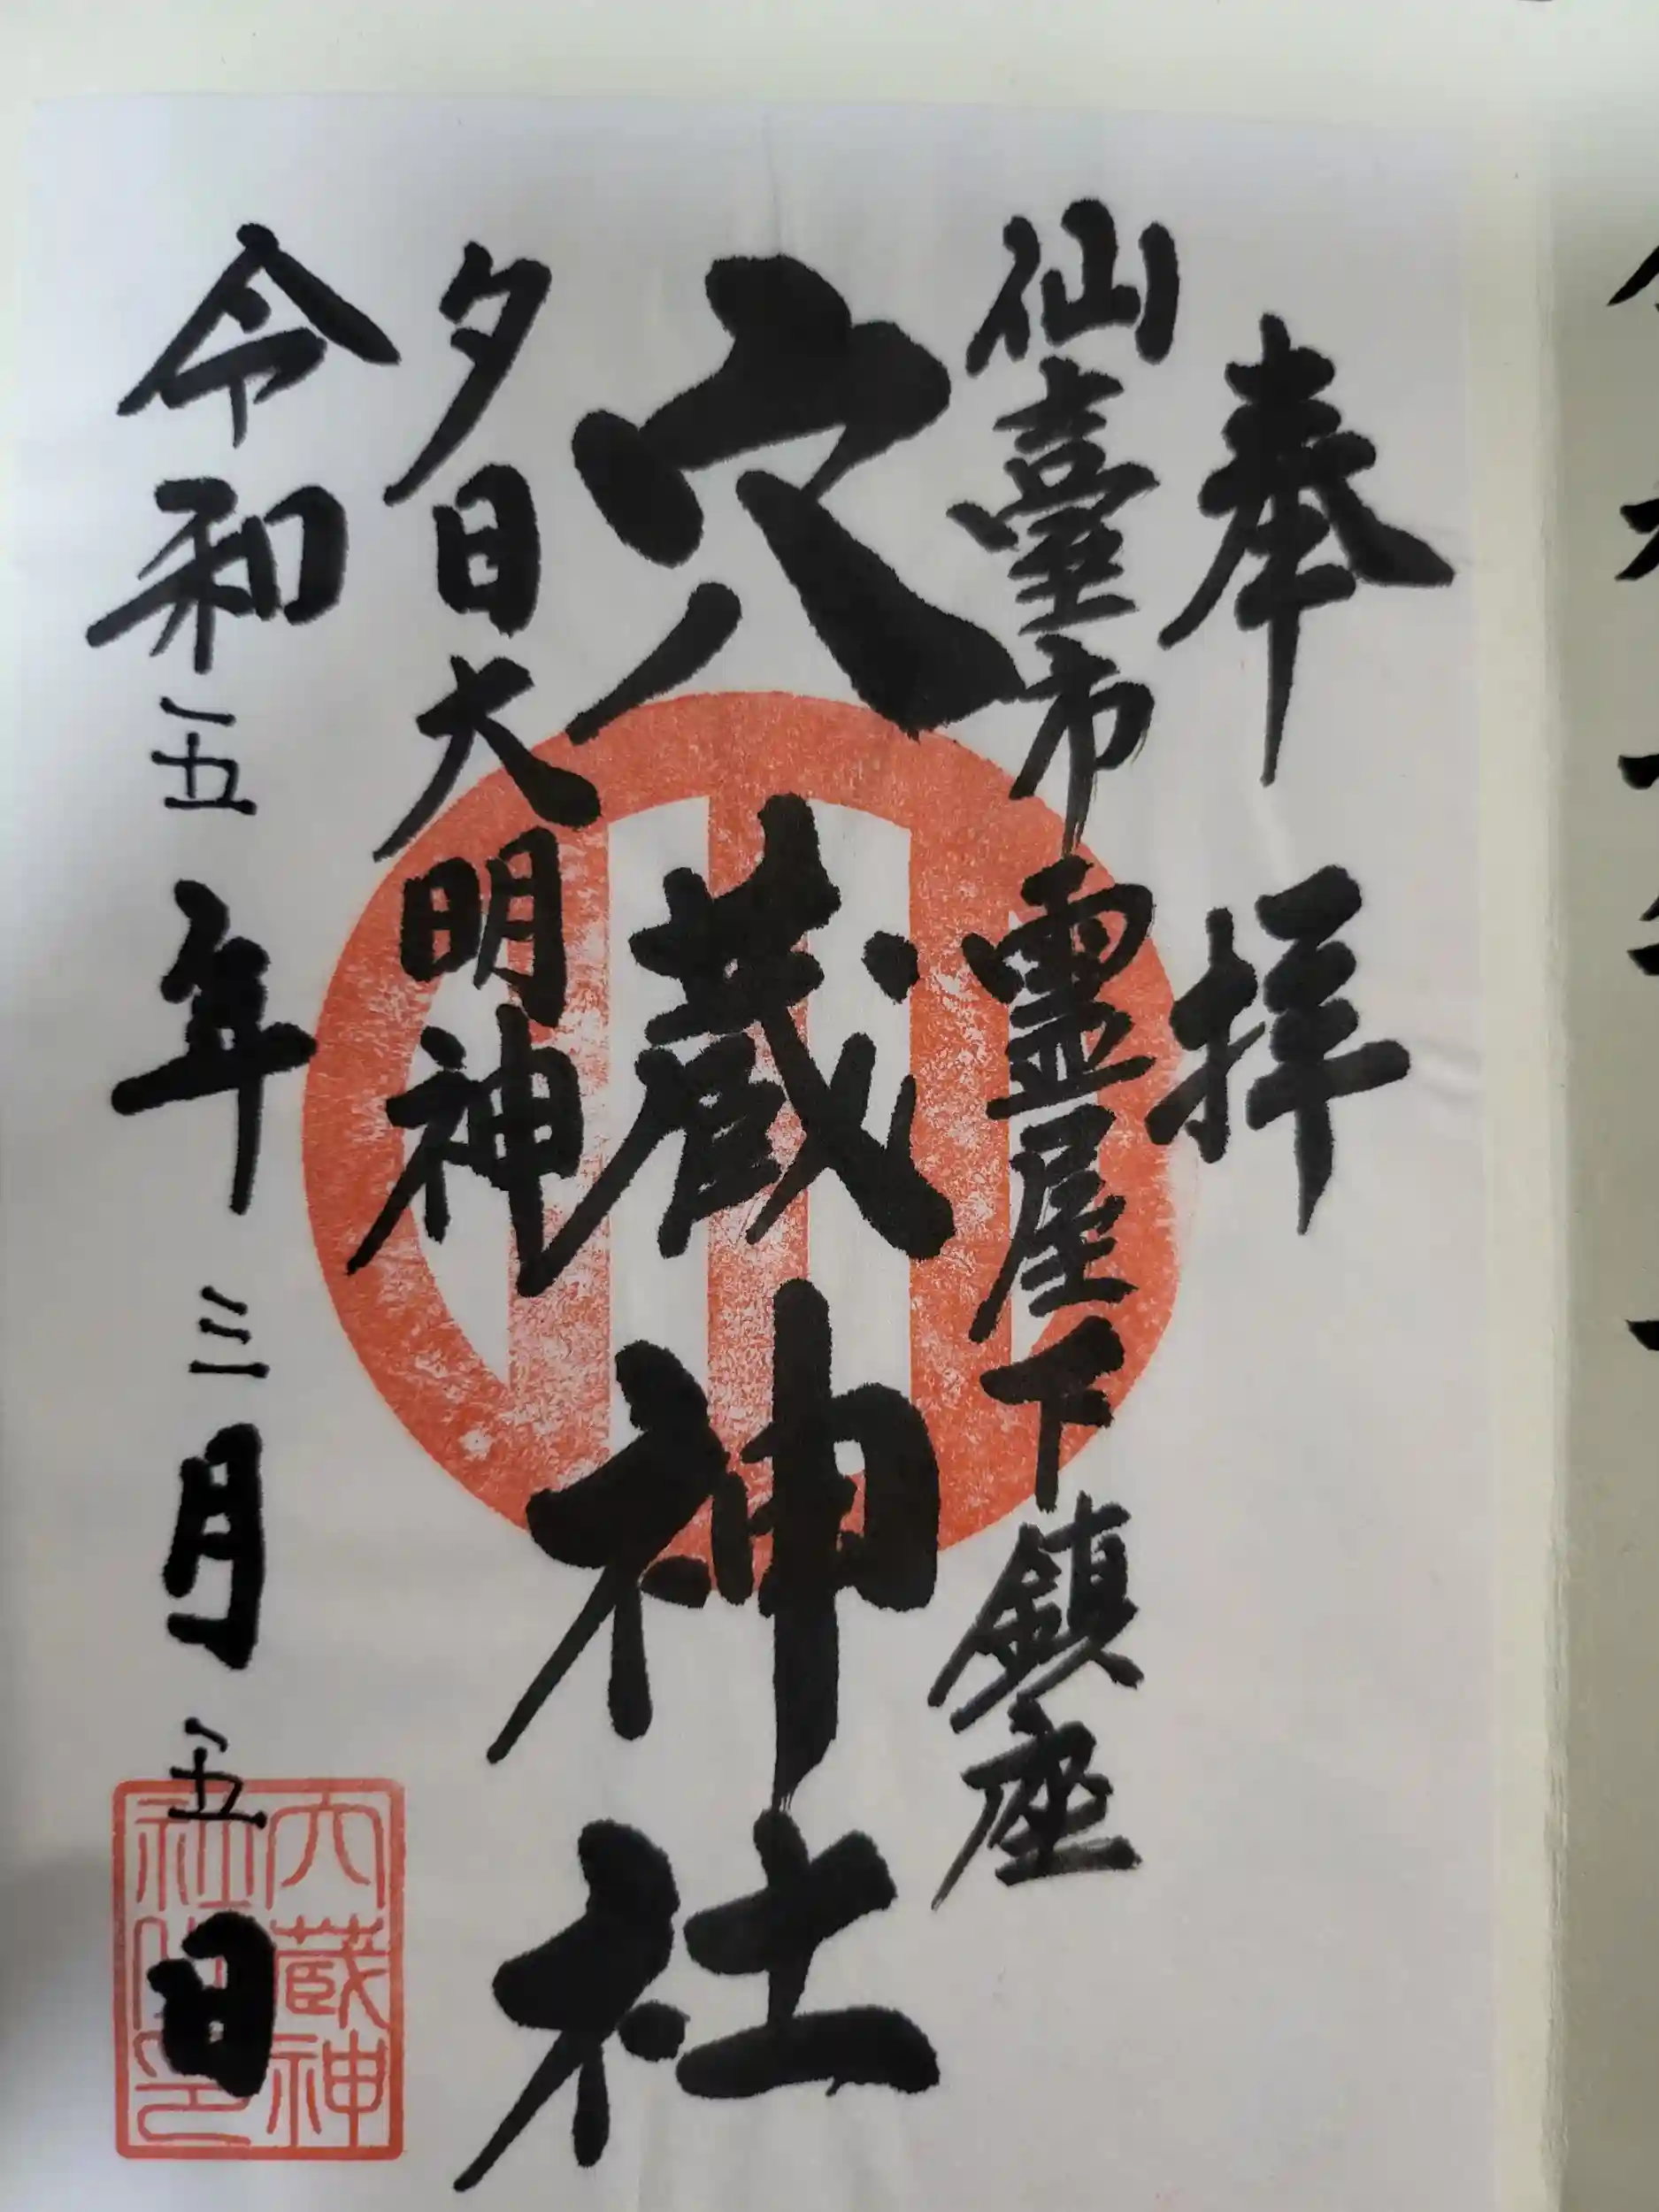 奉拝
仙臺市霊屋下鎮座
穴蔵神社
夕日大明神
令和五年三月五日
穴蔵神社